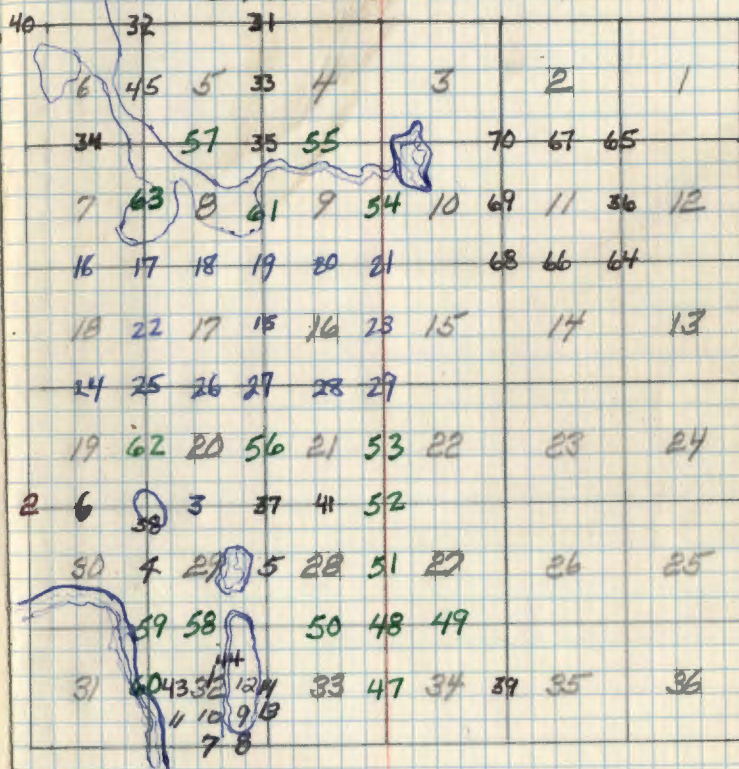 40 32 31
6 45 5 33 4 3 2 1
34 57 35 55 70 67 65
7 63 8 61 9 54 10 69 11 36 12
16 17 18 19 20 21 68 66 64
18 22 17 15 16 23 15 14 13
24 25 26 27 28 29
19 62 20 56 21 53 22 23 24
2 6 38 3 37 41 52
30 4 29 5 28 51 27 26 25
59 58 50 48 49
44
31 60 43 32 12 14 33 47 34 39 35 36
11 10 9 13
7 8